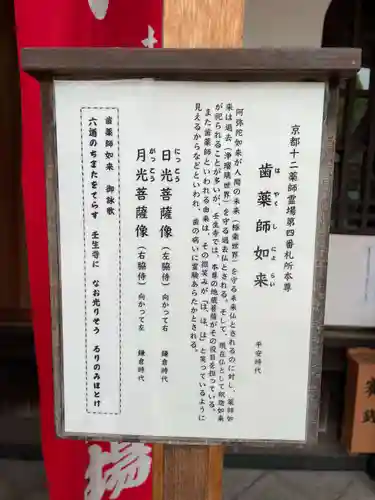 京都十二薬師霊場第四番札所本尊
歯薬師如来
は やく し にょ らい
平安時代
阿弥陀如来が人間の未来（極楽世界）を守る未来仏とされるのに対し、薬師如
来は過去（浄瑠璃世界）を守る過去仏とされる。そして、現在仏として釈迦如来
が祀られることが多いが、壬生寺では、本尊の地蔵菩薩がその役目を担っている。
また歯薬師といわれる由来は、その微笑みが「は、は、は」と笑っているように
見えるからなどといわれ、歯の病いに霊験あらたかとされる。
にっこう
日光菩薩像（左脇待）向かって右 鎌倉時代
がっこう
月光菩薩像（右脇待）向かって左 鎌倉時代
歯薬師如来 御詠歌
六道のちまたをてらす 壬生寺に なお光りそう るりのみほとけ
場